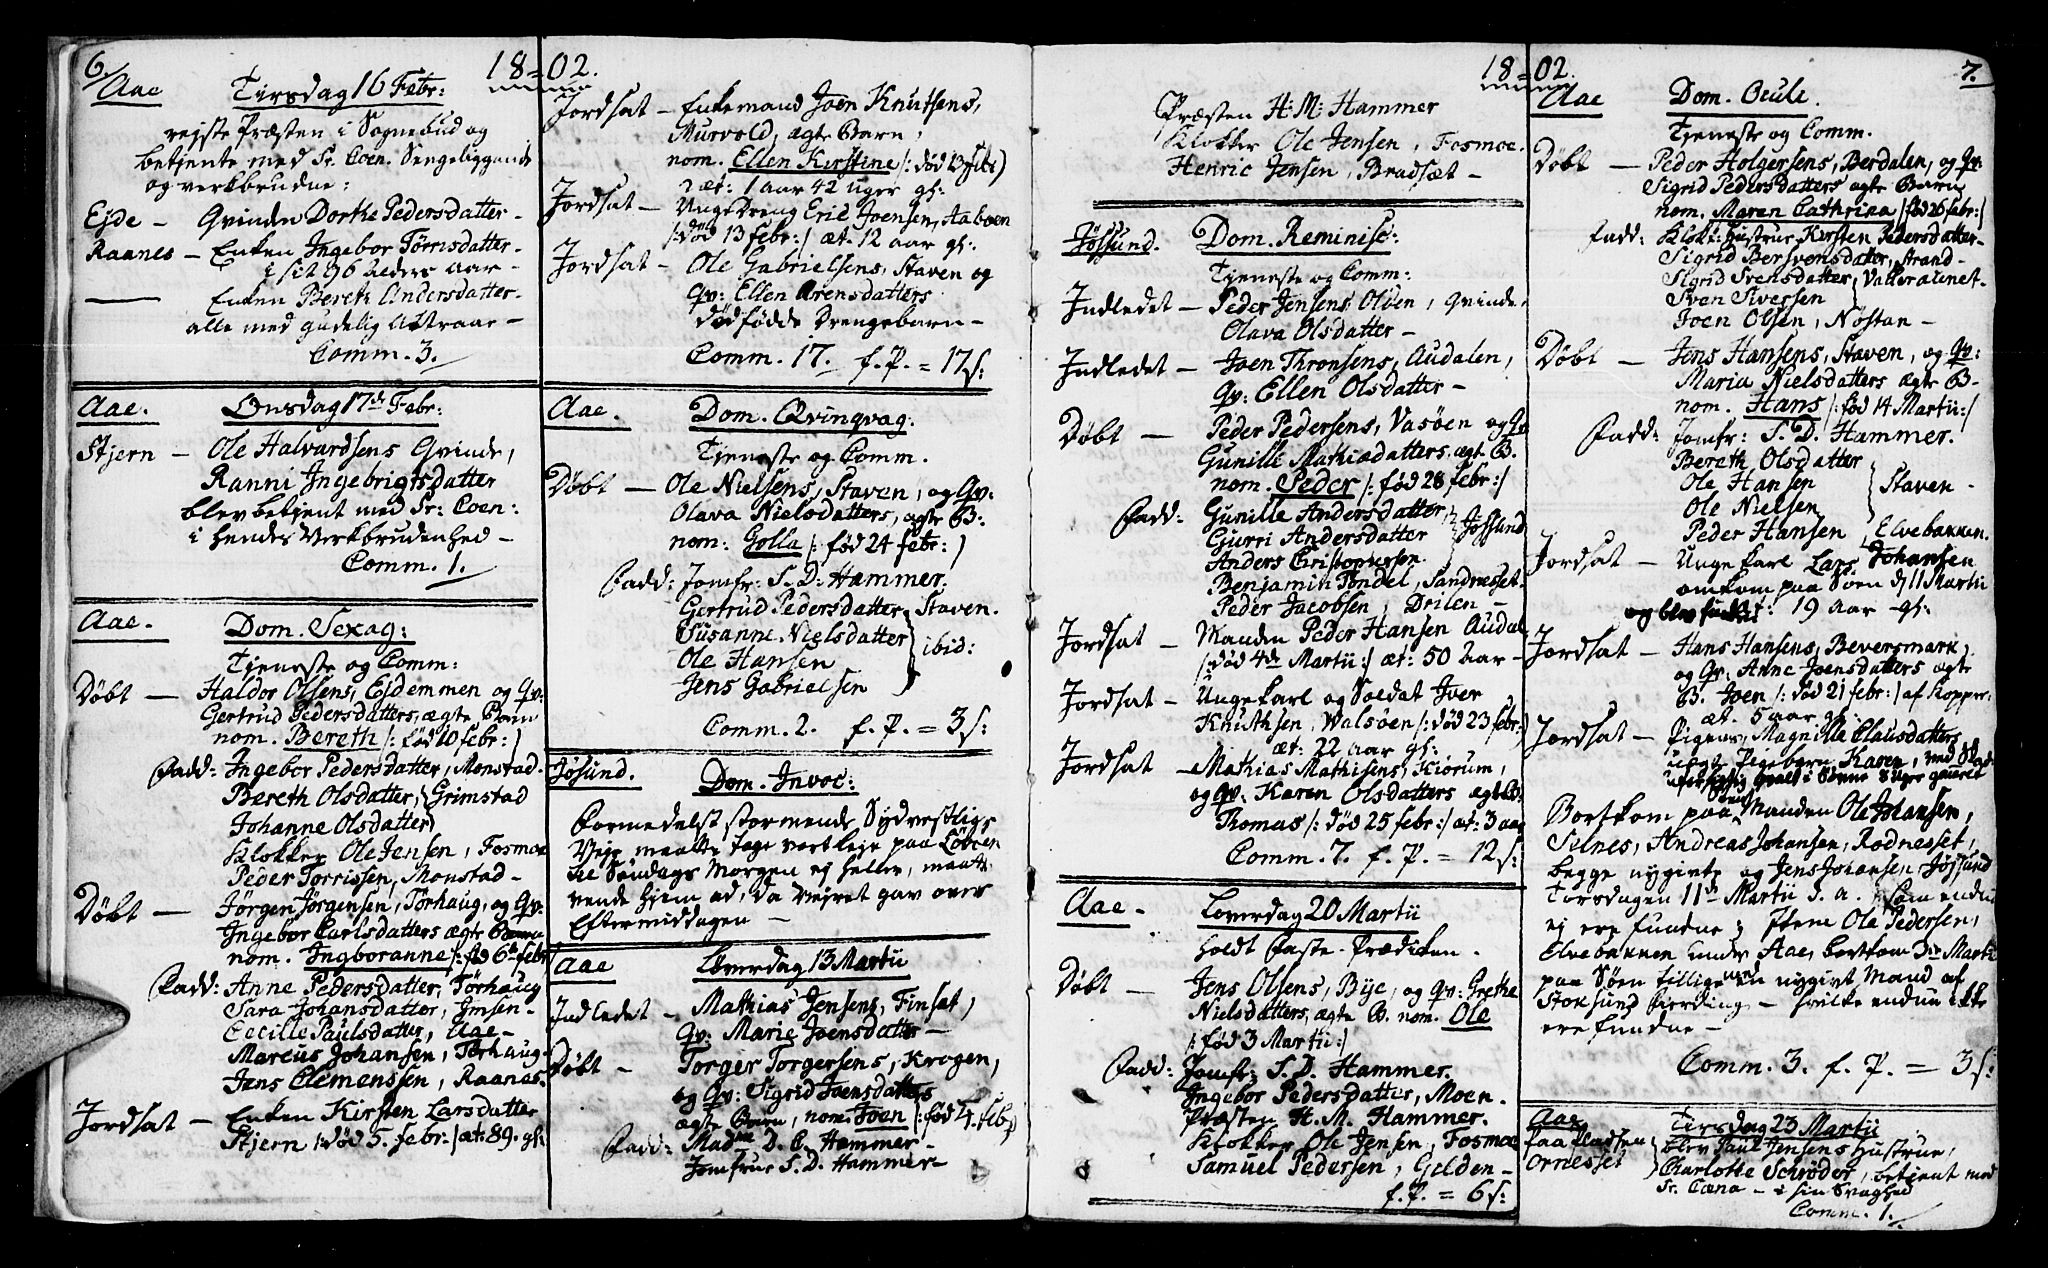 6.
18=02.
Aae Tirsdag 16 Febr:
rejste Præsten i Sognebud og
betjente med Sr. Coen. Sengeliggende
og verkbrudne:
Ejde – Qvinden Dorthe Pedersdatter –
Raanes – Enken Ingebor Tørrisdatter –
i sit 96 Leders Aar –
Enken Bereth Andersdatter –
alle med gudelig Attraae –
Comm. 3.
Aae. Onsdag 17de Febr:
Stjern – Ole Halvardsens Qvinde,
Ranni Ingebrigtsdatter
blev betjent med Sr: Coen:
i hendes Verkbrudenhed –
Comm. 1.
Aae. Dom. Sexag:
Tjeneste og Comm:
Døbt – Haldor Olsens, Ejdemmen og Qv:
Gertrud Pedersdatters, ægte Barn
nom. Bereth /: fød 10 febr: /
Fadd: Ingebor Pedersdatter, Monstad.
Bereth Olsdatter, Grimstad
Johanne Olsdatter
Klokker Ole Jensen, Fosmoe
Peder Tørrissen, Monstad –
Døbt – Jørgen Jørgensen, Tørhaug, og Qv:
Ingebor Carlsdatters ægte Barn
nom. Ingboranne /: fød 6te febr
Fadd: Anne Pedersdatter, Tørhaug
Sara Johansdatter, Imsen –
Cecille Paulsdatter, Aae –
Marcus Johansen, Tørhaug –
Jens Clemenssen, Raanes.
Jordsat – Enken Kirsten Larsdatter
Stjern /: død 5. febr: / æt: 89. gl:
Jordsat – Enkemand Joen Knutsens,
Murvold, ægte Barn,
nom. Ellen Kirstine /: død 13 febr)
æt: 1 aar 42 uger gl:
Jordsat – Unge Dreng Eric Joensen, Aaboen
/: død 13 febr: / æt. 12 aar gl:
Jordsat – Ole Gabrielsens, Staven og
Qv: Ellen Arensdatters
dødfødde Drengebarn –
Comm. 17. f. P. = 17 s:
Aae. Dom. Qvinqvag:
Tjeneste og Comm.
Døbt – Ole Nielsens, Staven, og Qv:
Olava Nielsdatters, ægte B:
nom: Golla /: fød 24 febr: /
Fadd: Jomfr: S. D: Hammer.
Gertrud Pedersdatter Staven.
Susanne Nielsdatter
Ole Hansen ibid:
Jens Gabrielsen
Comm. 2. f. P. = 3 s:
Jøsund. Dom. Invoc:
Formedelst stormende Sydvestligs
Vejr maatte tage verbleje paa Løboen
til Søndags Morgen ej heller, maatte
vende hjem ad, da Vejret gav over
Eftermiddagen –
Aae Løverdag 13 Martii
Indledet – Mathias Jensens, Finset,
Qv: Marie Joensdatter –
Døbt – Torger Torgersens, Krogen,
og Qv: Sigrid Joensdatters
ægte Barn, nom: Joen /: fød 4. feb
Fadd: Madme D. C. Hammer –
Jomfrue S. D. Hammer –
18=02.
7.
Præsten H: M: Hammer
Klokker Ole Jensen, Fosmoe.
Henric Jensen, Bradsæt –
Jøssund. Dom. Reminisc:
Tjeneste og Comm:
Indledet – Peder Jensens, Olden, Qvinde
Olava Olsdatter –
Indledet – Joen Thronsens, Audalen,
Qv: Ellen Olsdatter –
Døbt – Peder Pedersens, Vasøen og Qv
Gunille Mathiædatters, ægt. B.
nom. Peder /: fød 28 febr: /
Fadd: Gunille Andersdatter, Jøssund
Gjurri Andersdatter
Anders Christophersen
Benjamin Pondel, Sandnesset.
Peder Jacobsen, Drilen –
Jordsat – Manden Peder Hansen Audal
/: død 4de Martii: / æt: 50 Aar –
Jordsat – Ungekarl og Soldat Iver
Knuthsen, Walsøen /: død 23 febr: /
æt: 22 aar gl:
Jordsat – Mathias Mathisens, Kiorum,
og Qv: Karen Olsdatters ægte B:
Thomas /: død 25 febr: / æt: 3 aar
Comm. 7. f. P. = 12 s:
Aae. Løverdag 20 Martii
holdt Faste-Prædiken.
Døbt – Jens Olsens, Bye, og Qv: Grethe
Nielsdatters, ægte B. nom. Ole
/: fød 3 Martii: /
Fadd: Jomfr: S. D. Hammer.
Ingebor Pedersdatter, Moen.
Præsten H. M. Hammer.
Klokker Ole Jensen, Fosmoe
Samuel Pedersen, Gjelden –
f. P. = 6 s:
Aae Dom. Oculi.
Tjeneste og Comm.
Døbt – Peder Holgersens, Berdalen, og Qv:
Sigrid Pedersdatters ægte Barn
nom. Maren Cathrina /: fød 26 febr: /
Fadd: Klok: Hustrue Kirsten Pedersdatter –
Sigrid Bersvensdatter, Strand –
Sigrid Svensdatter, Valleralenet.
Sven Siversen
Joen Olsen, Nøstan –
Døbt – Jens Hansens, Staven, og Qv:
Maria Nielsdatters ægte B –
nom. Hans /: fød 14 Martii: /
Fadd: Jomfr: S. D. Hammer.
Bereth Olsdatter
Ole Hansen Staven –
Ole Nielsen
Peder Hansen, Elvebakken.
Jordsat – Unge karl Lars Johansen
omkom paa Søen d. 11 Martii
og blev funden: 19 aar gl:
Jordsat – Hans Hansens, Beversmark,
og Qv: Anne Joensdatters ægte
B. Joen /: død 21 febr: / af Kopper
æt. 5 aar gl:
Jordsat – Pigens, Magnille Clausdatters
uægte Pigebarn Karen,
Bortkom paa Søen Manden Ole Johansen,
Selnes, Andreas Johansen, Rødnesset,
begge nygivte og Jens Johansen, Jøssund
Torsdagen 11de Martii d. a. som endnu
ej ere fundne; Item Ole Pedersen,
Elvebakken under Aae, bortkom 3die Martii
paa Søen tillige med en nygivt Mand af
Stoksund Fierding – hvilke endnu ikke
ere fundne –
Comm. 3. f. P. = 3 s:
Aae Tirsdag 23 Martii
Paa Pladsen blev Paul Jensens Hustrue,
Ornesset Charlotte Schrøder, betjent med
Sr. Cæna – i sin Svaghed
Comm. 1.